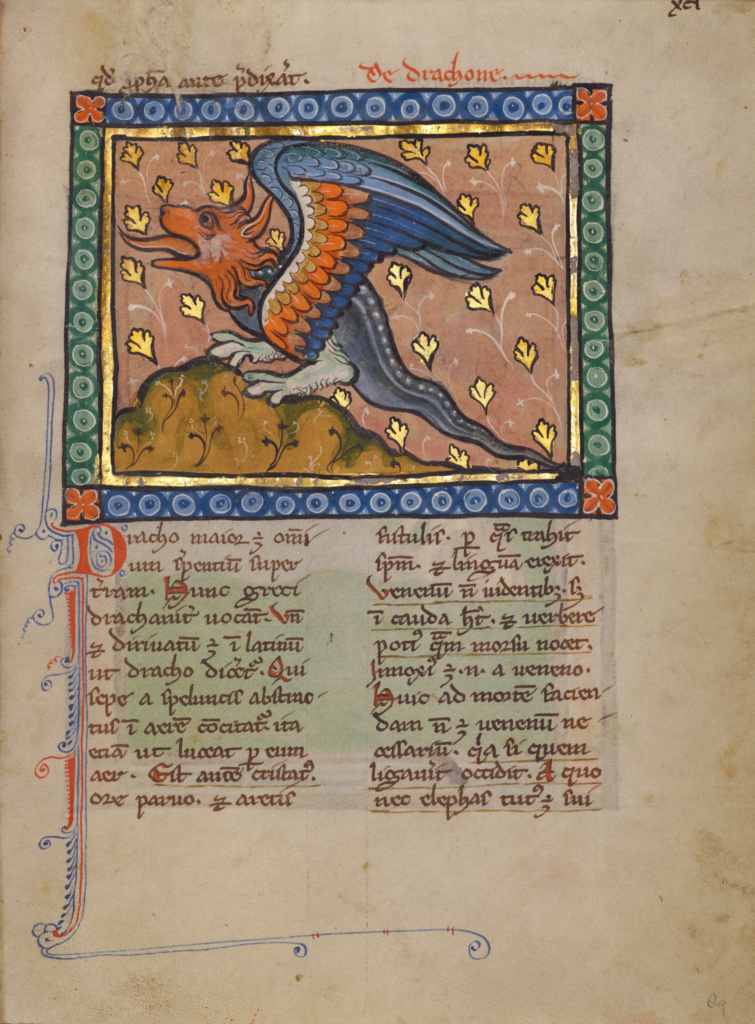 xci
qd̄ ꝓph̄a ante p̄dixat̄.
De drachone.
Dracho maior ⁊ om̄i
um ſp̄entiū ſuper
t̄ram. Hunc greci
drachanit̄ uocāt. Vn̄
⁊ diriuatū ⁊ ī latinū
ut dracho dicet᷑. Qui
ſepe a ſpeluncis abſtrac
tus ī aerē cōcitat᷑. ita
etiā ut luceat ꝑ eum
aer. Eſt autē criſtatꝰ.
ore paruo. ⁊ artis
fiſtulis. ꝑ q̄s trahit
ſpm̄. ⁊ linguā exerit.
Venenū n̄ ī dentibꝫ. ſꝫ
ī cauda h̄t. ⁊ uerbere
potiꝰ q̄m morſu nocet.
Innoxiꝰ ⁊ .n. a ueneno.
Huic ad mortē facien
dam n̄ ⁊ uenenū ne
ceſſariū. q̄a ſi quem
ligauit̄ occidit. A quo
nec elephas tutꝰ ⁊ ſui
89